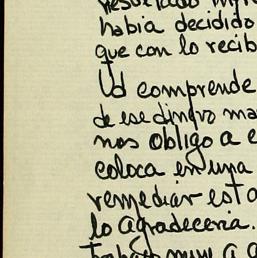 resultado
habia decidido
que con lo recib
Ud comprende
de ese dinero ma
nos obligo a e
coloca en una
remediar esta
lo agradeceria.
Trabajo muy a g